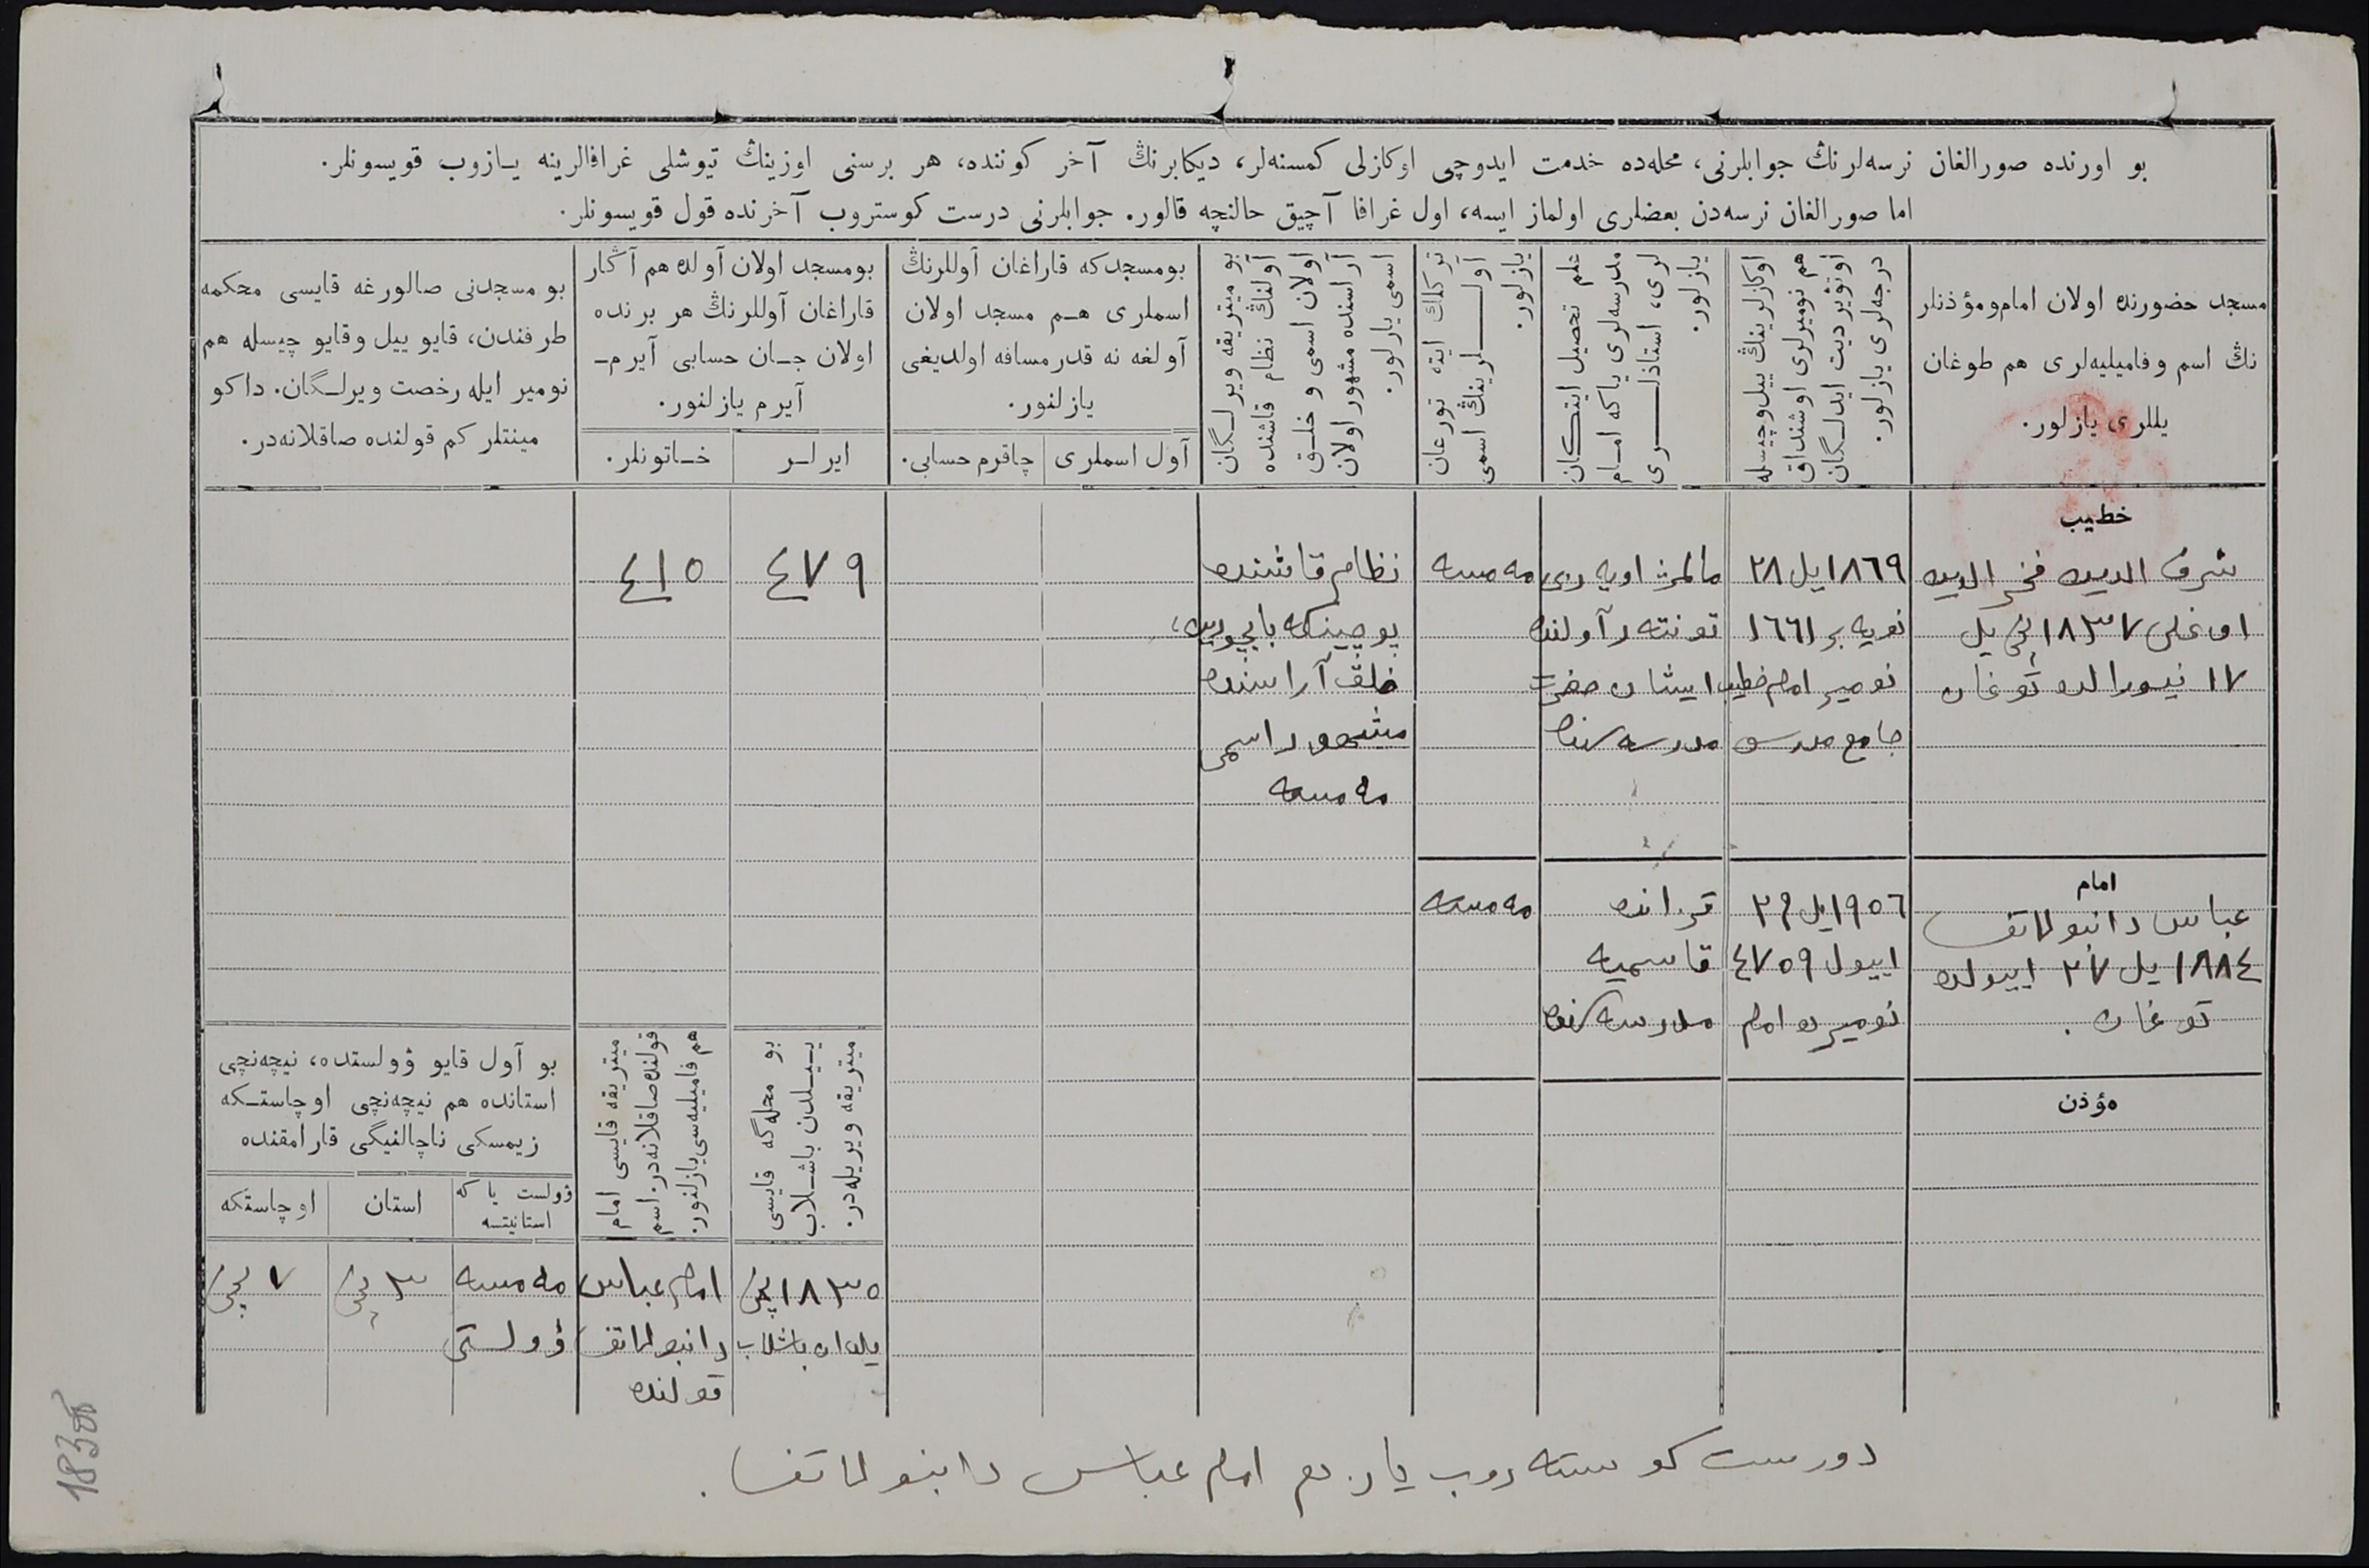 بو اورنده صورالغان نرسه‌لرنڭ جوابلرنی، محله‌ده خدمت ایدوچی اوکازلی کمسنه‌لر، دیکابرنڭ آخر کوننده، هر برسنی اوزینڭ تیوشلی غرافالرینه یازوب قویسونلر.
اما صورالغان نرسه‌دن بعضلری اولماز ایسه، اول غرافا آچیق حالنچه قالور. جوابلرنی درست کوستروب آخرنده قول قویسونلر.
مسجد حضورنده اولان امام‌ومؤذنلر
نڭ اسم وفامیلیه‌لری هم طوغان
یللری یازلور.
اوکازلرینڭ ییل‌وچیسله
هم نومیرلری اوشنداق
اوتوێردیت ایدلگان
درجه‌لری یازلور.
علم تحصیل ایتکان
مدرسه‌لری یاکه امام
لری، استاذلری
یازلور.
ترکلك ایته، تورغان
آوللرینڭ اسمی
یازلور.
بو میتریقه ویرلگان
آولنڭ نظام قاشنده
اولان اسمی و خلق
آراسنده مشهور اولان
اسمی یازلور.
بومسجدکه قاراغان آوللرنڭ
اسملری هم مسجد اولان
آولغه نه قدر مسافه اولدیغی
یازلنور.
آول اسملری
چاقرم حسابی.
بومسجد اولان آولده هم آڭار
قاراغان آوللرنڭ هر برنده
اولان جان حسابی آیرم-
آیرم یازلنور.
ایرلر
خاتونلر.
بو مسجدنی صالورغه قایسی محکمه
طرفندن، قایو ییل وقایو چیسله هم
نومیر ایله رخصت ویرلگان. داکو
مینتلر کم قولنده صاقلانه‌در.
خطیب
شرف الدین فخر الدین
اوغلی ١٨٣٧ نچی یل
١٧ نیورالده توغان
١٨٦٩ یل ٢٨
نویه بر ١٦٦١
نومیر امام خطیب
جامع مدرس
اویه زی
تونته ر آولنده
ایشان حضرت
مدرسه سنده
مه مسه
نظام قاشنده
خلق آراسنده
مشهور اسمی
مه مسه
٤٧٩
٤١٥
امام
عباس دانبولاتف
١٨٨٤ یل ٢٧ اییولده
توغان.
١٩٠٦ یل ٢٩
اییول ٤٧٥٩
نومیر بو امام
قزانده
قاسمیه
مدرسه سنده
مه مسه
مؤذن
بو محله‌گه قایسی
ییلدن باشلاب
میتریقه ویریله‌در.
میتریقه قایسی امام
قولنده‌صاقلانه‌در. اسم
هم فامیلیه‌سی‌یازلنور.
بو آول قایو ۋولستده، نیچه‌نچی
استانده هم نیچه‌نچی اوچاستکه
زیمسکی ناچالنیگی قارامقنده
ۋولست یا که
استانیتسه
استان
اوچاستکه
١٨٣٥ نچی
یلدان باشلاب
امام عباس
دانبولاتف
قولنده
مه مسه
ۋولستی
٣ نچی
٧ نچی
دورست کوسته روب یازدم امام عباس دانبولاتف.